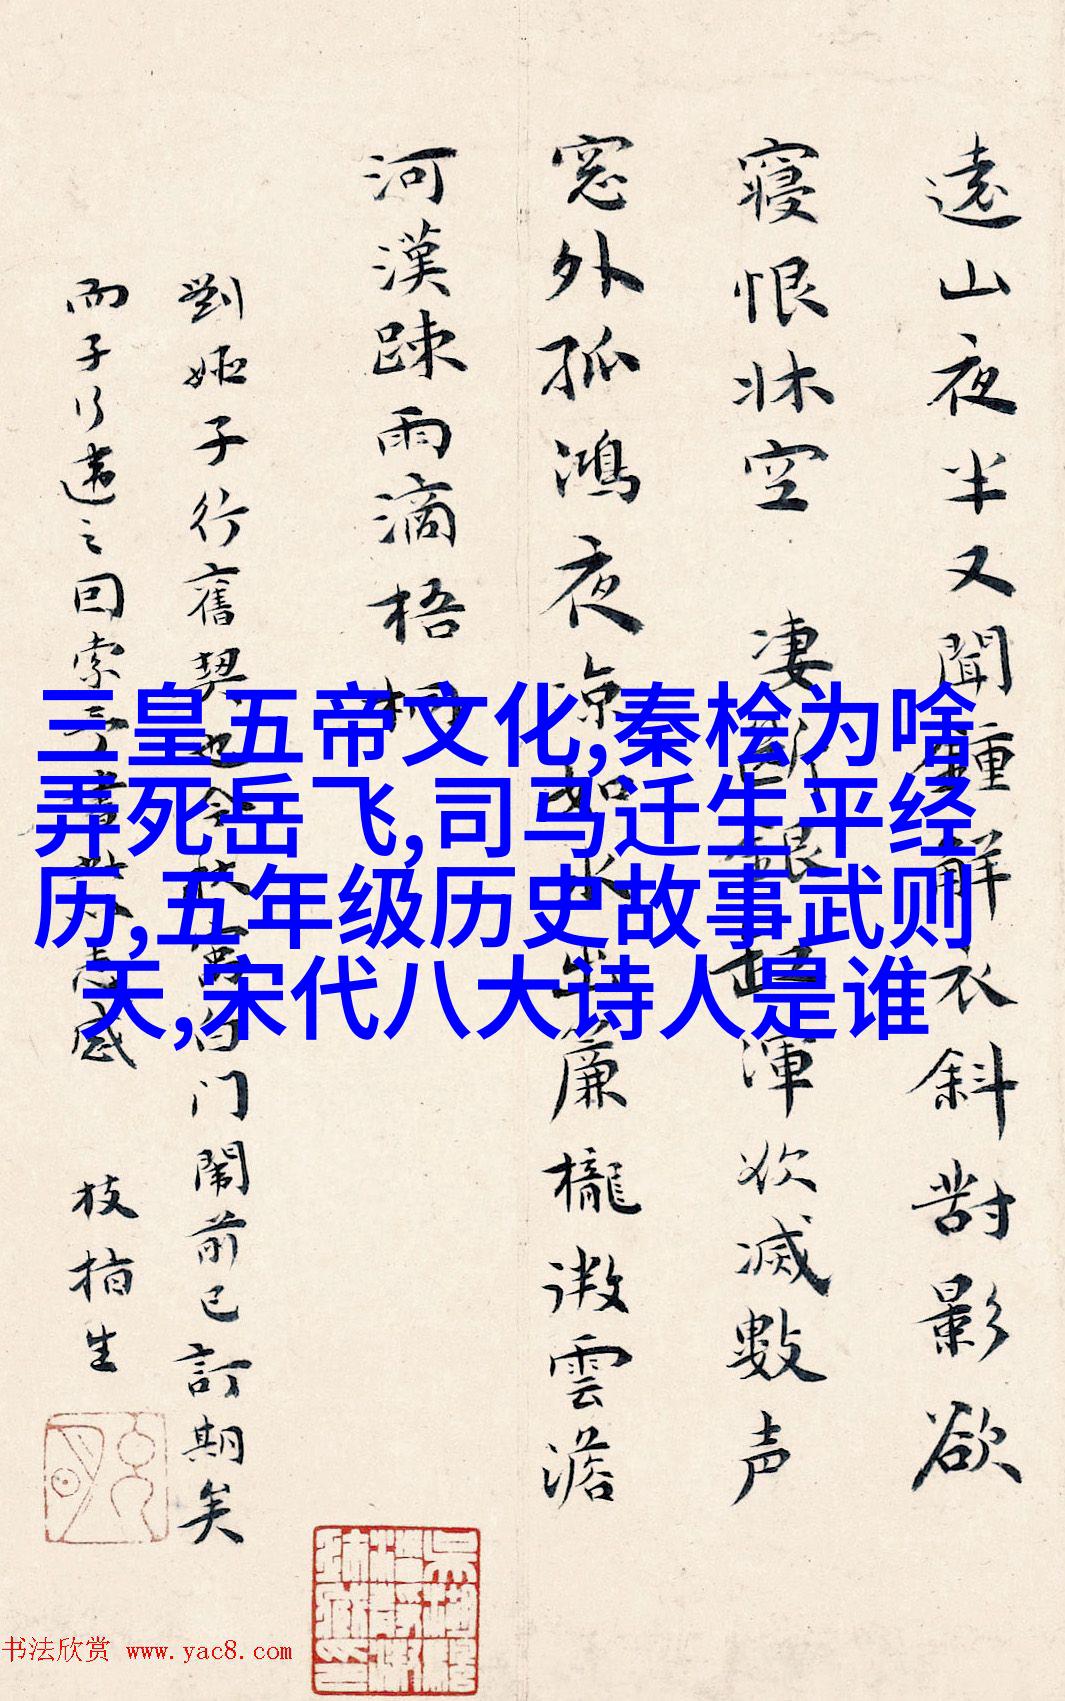 遠山夜半又聞鍾解衣斜對影欲
寝恨牀空 凄
渾欲滅數声
窓外孤鴻夜凉如水出簾櫳淡雲澹
河漢踈雨滴梧桐
劉姬子行舊契也
白门閙前已訂期矣
而子行遠之回索
枝指生
三皇五帝文化,秦桧为啥
弄死岳飞,司马迁生平经
历,五年级历史故事武则
天,宋代八大诗人是谁
书法欣赏 www.yac8.com